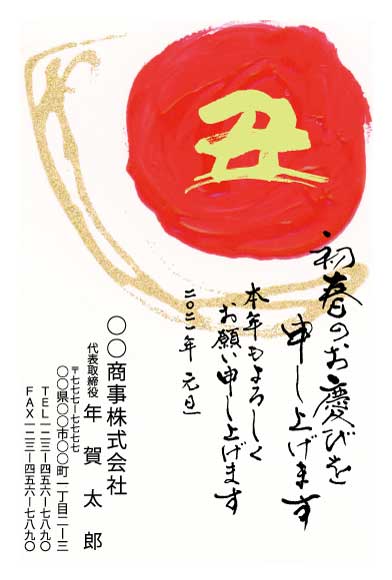 丑
初春のお慶びを
申し上げます
本年もよろしく
お願い申し上げます
二〇二一年 元旦
〇〇商事株式会社
代表取締役 年賀太郎
〒七七七ー七七七七
〇〇県〇〇市〇〇町一丁目二ー三
TEL一二三ー四五六ー七八九〇
FAX一二三ー四五六ー七八九〇